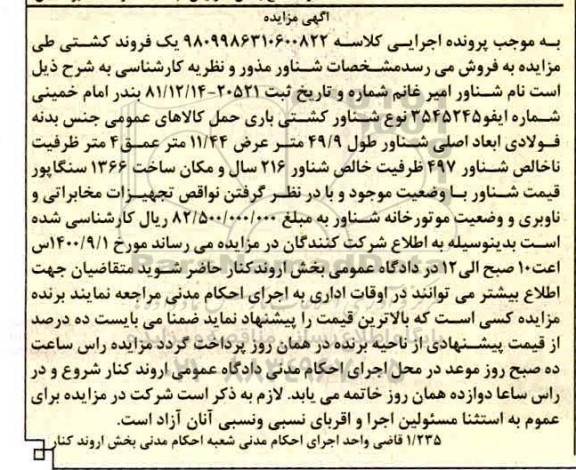 آگهی مزایده
به موجب پرونده اجرایی کلاسه ۹۸۰۹۹۸۶۳۱۰۶۰۰۸۲۲ یک فروند کشتی طی
مزایده به فروش می رسدمشخصات شناور مذور و نظریه کارشناسی به شرح ذیل
است نام شناور امیر غانم شماره و تاریخ ثبت ۲۰۵۲۱-۸۱/۱۲/۱۴ بندر امام خمینی
شماره ایفو۳۵۴۵۲۴۵ نوع شناور کشتی باری حمل کالاهای عمومی جنس بدنه
فولادی ابعاد اصلی شناور طول ۴۹/۹ متر عرض ۱۱/۴۴ متر عمق۴ متر ظرفیت
ناخالص شناور ۴۹۷ ظرفیت خالص شناور ۲۱۶ سال و مکان ساخت ۱۳۶۶ سنگاپور
قیمت شناور با وضعیت موجود و با در نظر گرفتن نواقص تجهیزات مخابراتی و
ناوبری و وضعیت موتورخانه شناور به مبلغ ۸۲/۵۰۰/۰۰۰/۰۰۰ ریال کارشناسی شده
است بدینوسیله به اطلاع شرکت کنندگان در مزایده می رساند مورخ ۱۴۰۰/۹/۱س
اعت۱۰ صبح الی۱۲ در دادگاه عمومی بخش اروندکنار حاضر شوید متقاضیان جهت
اطلاع بیشتر می توانند در اوقات اداری به اجرای احکام مدنی مراجعه نمایند برنده
مزایده کسی است که بالاترین قیمت را پیشنهاد نماید ضمنا می بایست ده درصد
از قیمت پیشنهادی از ناحیه برنده در همان روز پرداخت گردد مزایده راس ساعت
ده صبح روز موعد در محل اجرای احکام مدنی دادگاه عمومی اروند کنار شروع و در
راس ساعا دوازده همان روز خاتمه می یابد. لازم به ذکر است شرکت در مزایده برای
عموم به استثنا مسئولین اجرا و اقربای نسبی ونسبی آنان آزاد است.
۱/۲۳۵ قاضی واحد اجرای احکام مدنی شعبه احکام مدنی بخش اروند کنار
ParsNamadData